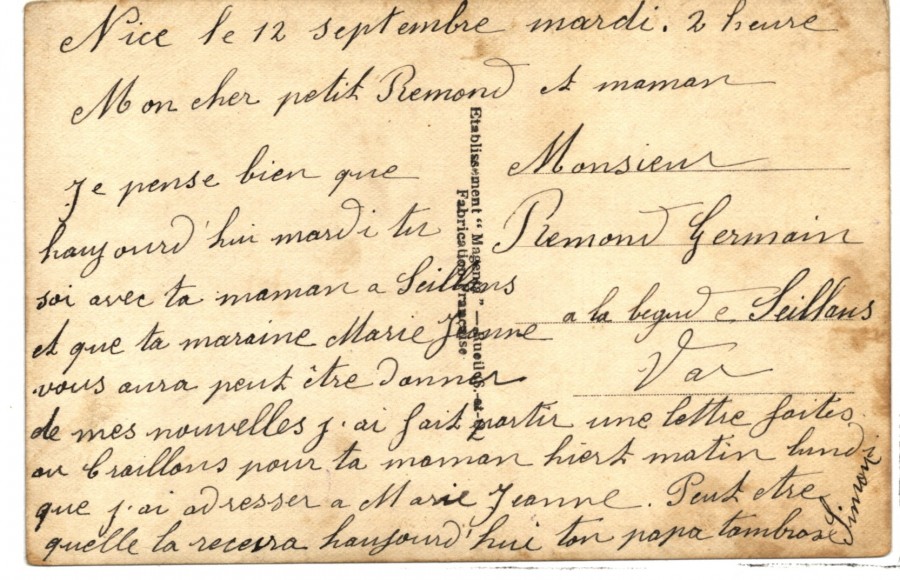 Nice le 12 septembre mardi. 2 heure
Mon cher petit Remond et maman
Je pense bien que
haujourd'hui mardi tu
soi avec ta maman a Seillans
et que ta maraine Marie Jeanne
vous aura peut être donner
de mes nouvelles j'ai fait partir une lettre faites
au Craillons pour ta maman hiert matin lundi
que j'ai adresser a Marie Jeanne. Peut etre
quelle la recevra haujourd'hui ton papa tambrase
Simon
Monsieur
Remond Germain
a la begude Seillans
Var
Etablissement "Magenta"
Fabrication Française